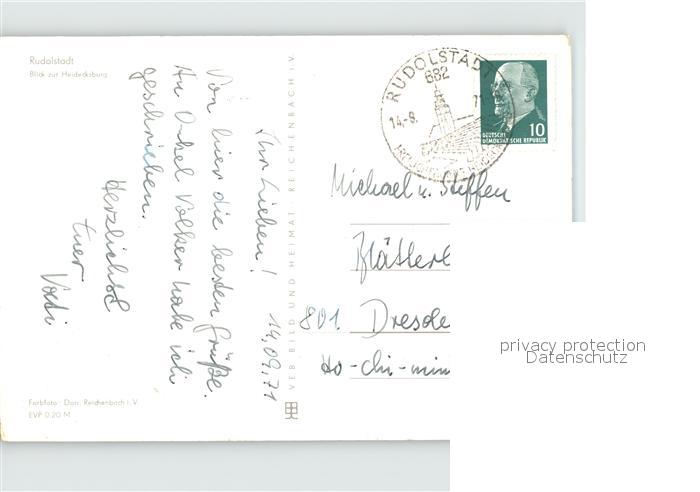 Rudolstadt
Blick zur Heidecksburg
14.09.71
Ihr Lieben!
Von hier die besten Grüße.
An Onkel Volker habe ich
geschrieben.
Herzlichst
Euer
Vati
Farbfoto: Darr, Reichenbach i. V.
EVP 0.20 M
VEB BILD UND HEIMAT · REICHENBACH i. V.
RUDOLSTADT
682
14.-9. 71
DEUTSCHE
DEMOKRATISCHE REPUBLIK
10
Michael u. Steffen
801 Dresde
Ho-chi-min
privacy protection
Datenschutz